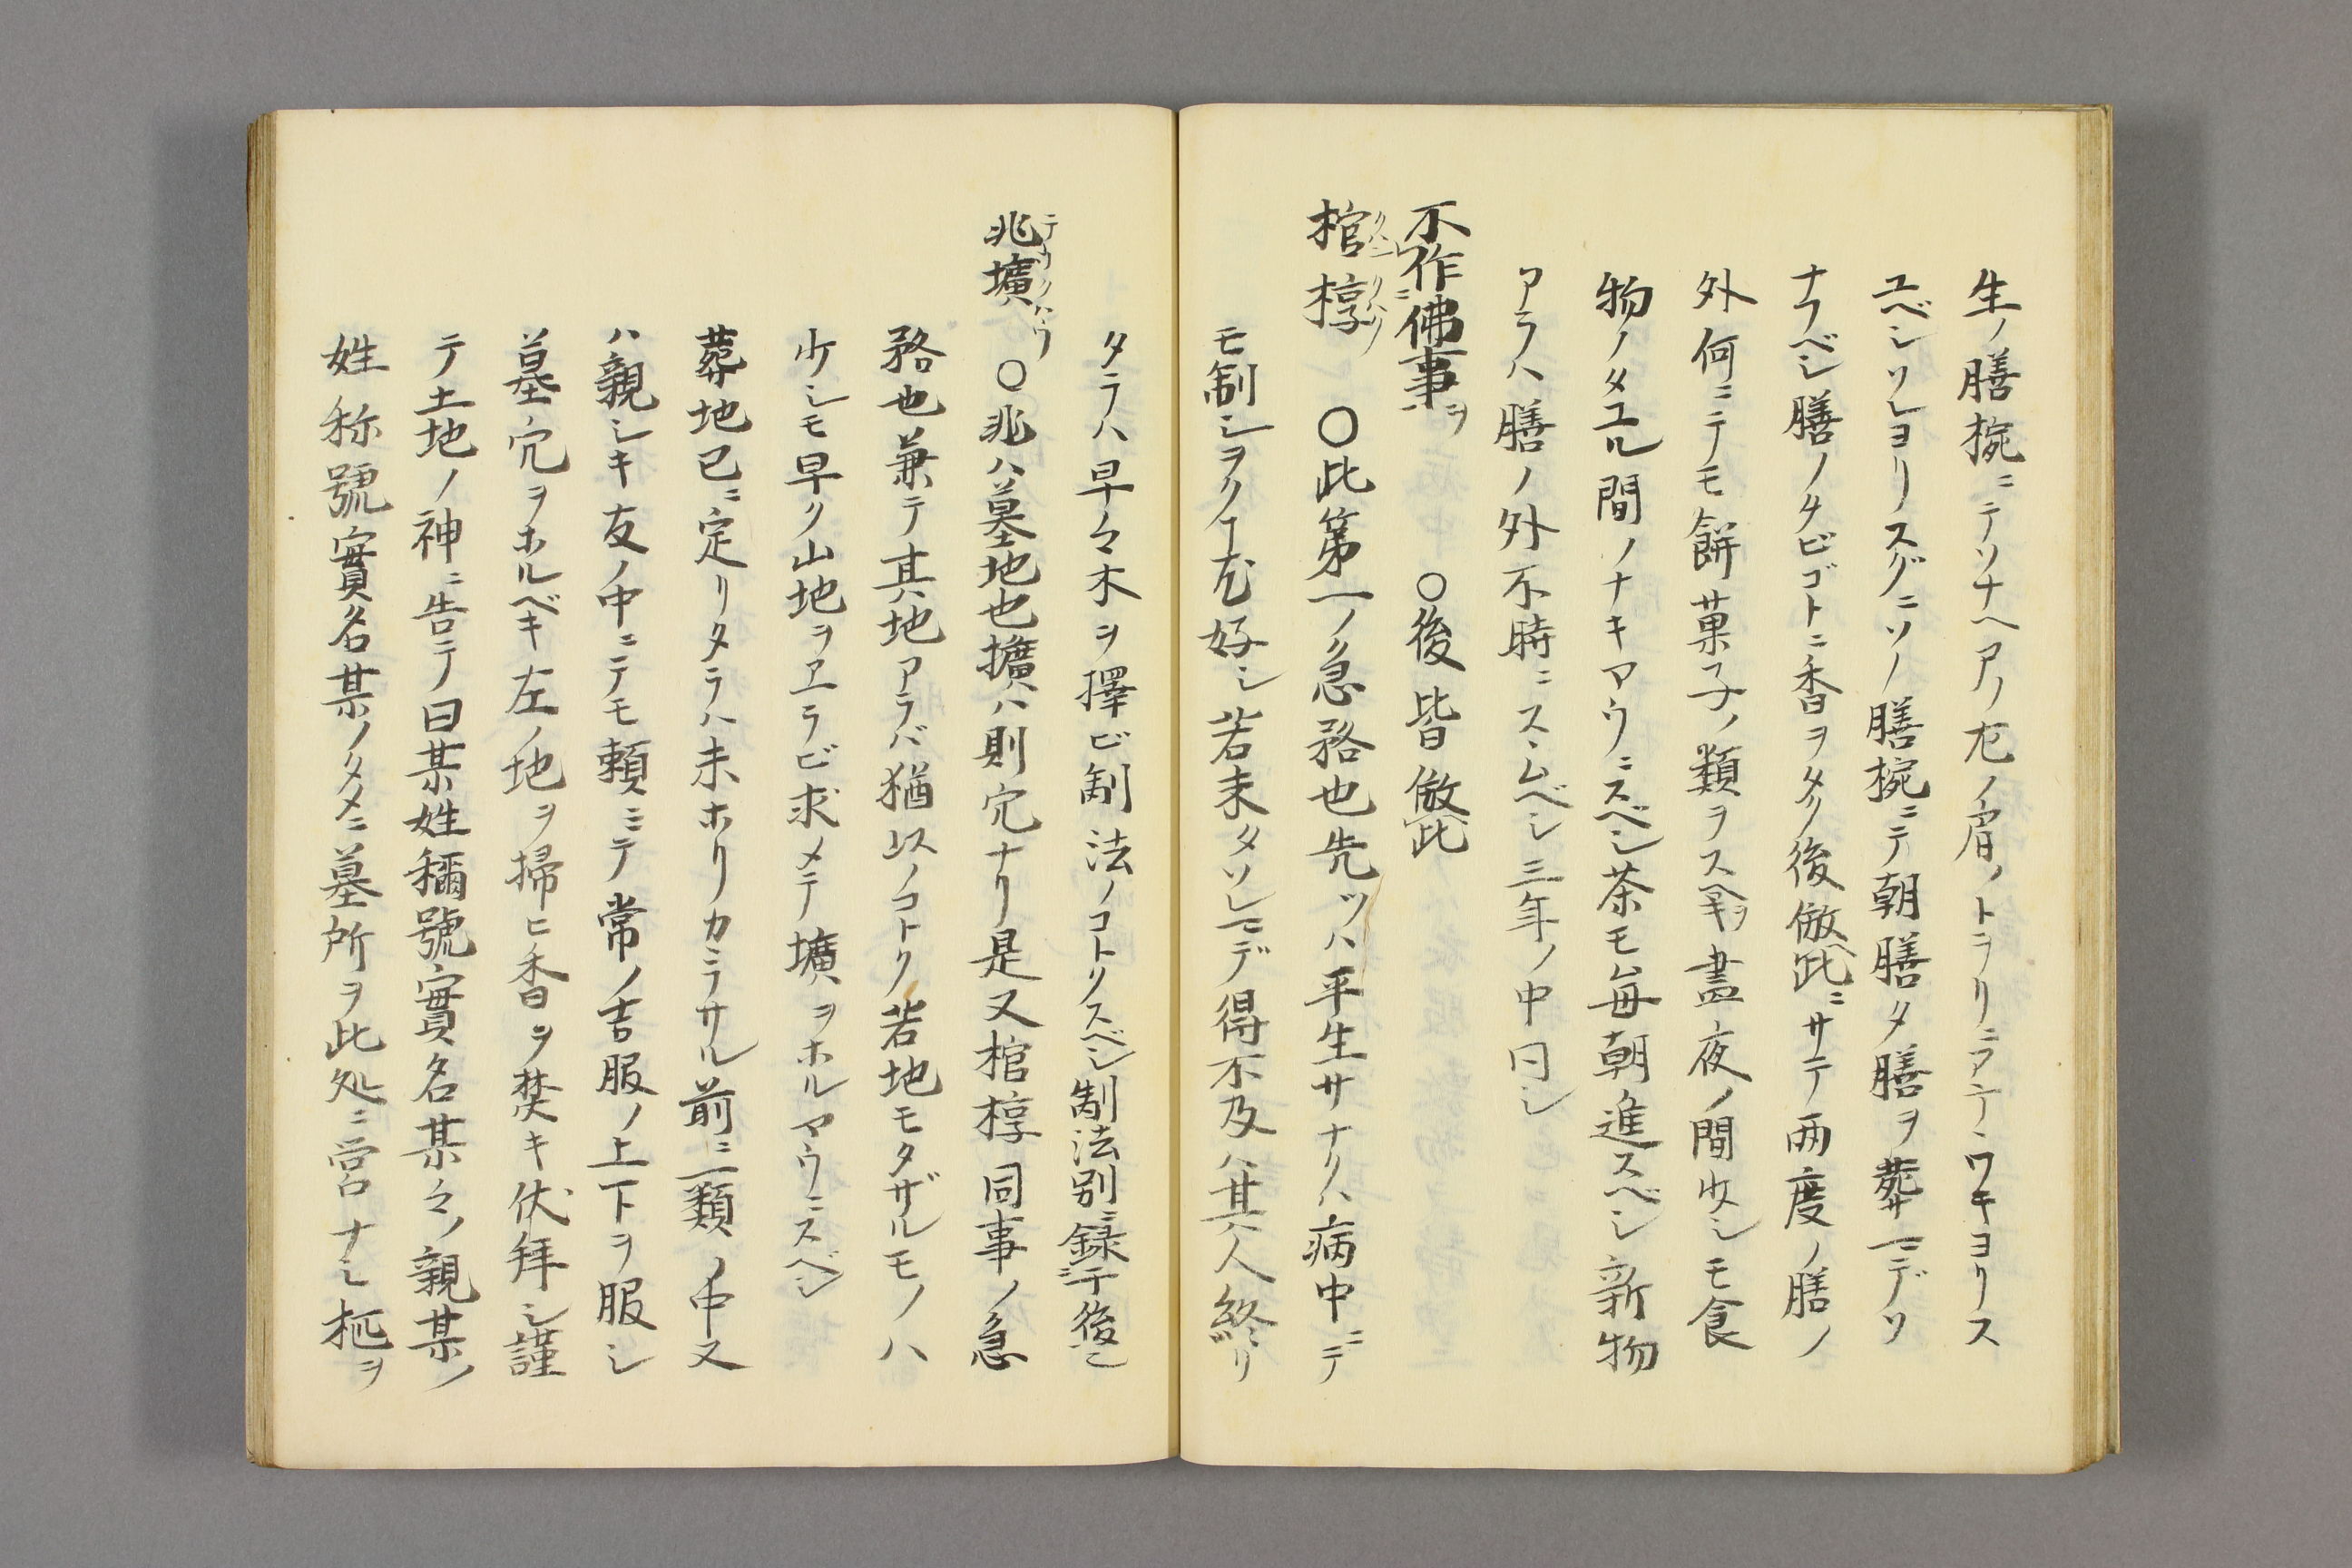 生ノ膳椀ニテソナヘアノ尤ノ肩ノトヲリニアテワキヨリス
ユベシソレヨリスグニソノ膳椀ニテ朝膳夕膳ヲ葬マデソ
ナフベシ膳ノタビゴトニ香ヲタク後倣此ニサテ両度ノ膳ノ
外何ニテモ餅菓子ノ類ヲスヽキヲ晝夜ノ間少シモ食
物ノタユル間ノナキヤウニスベシ茶モ毎朝進スベシ新物
アラハ膳ノ外不時ニスヽムベシ三年ノ中同シ
不作ニ佛事ヲ ○後皆倣此
棺槨 ○此第一ノ急務也先ツハ平生サナクハ病中ニテ
モ制シヲクヿ尤好シ若未タソレマデ得不及ハ其人終リ
タラハ早々木ヲ擇ビ制法ノコトクスベシ制法別ニ録ニ于後ニ
兆壙 ○兆ハ墓地也擴ハ則穴ナリ是又棺槨同事ノ急
務也兼テ其地アラバ猶以ノコトク若地モタザルモノハ
少シモ早ク山地ヲエラビ求メテ壙ヲホルヤウニスベシ
葬地已ニ定リタラハ未ホリカヽラサル前ニ一類ノ中又
ハ親シキ友ノ中ニテモ頼ミテ常ノ吉服ノ上下ヲ服シ
墓穴ヲホルベキ左ノ地ヲ掃ヒ香ヲ焚キ伏拜シ謹
テ土地ノ神ニ告テ曰某姓稱號實名某々ノ親某ノ
姓称號實名某ノタメニ墓所ヲ此処ニ営ナシ柩ヲ